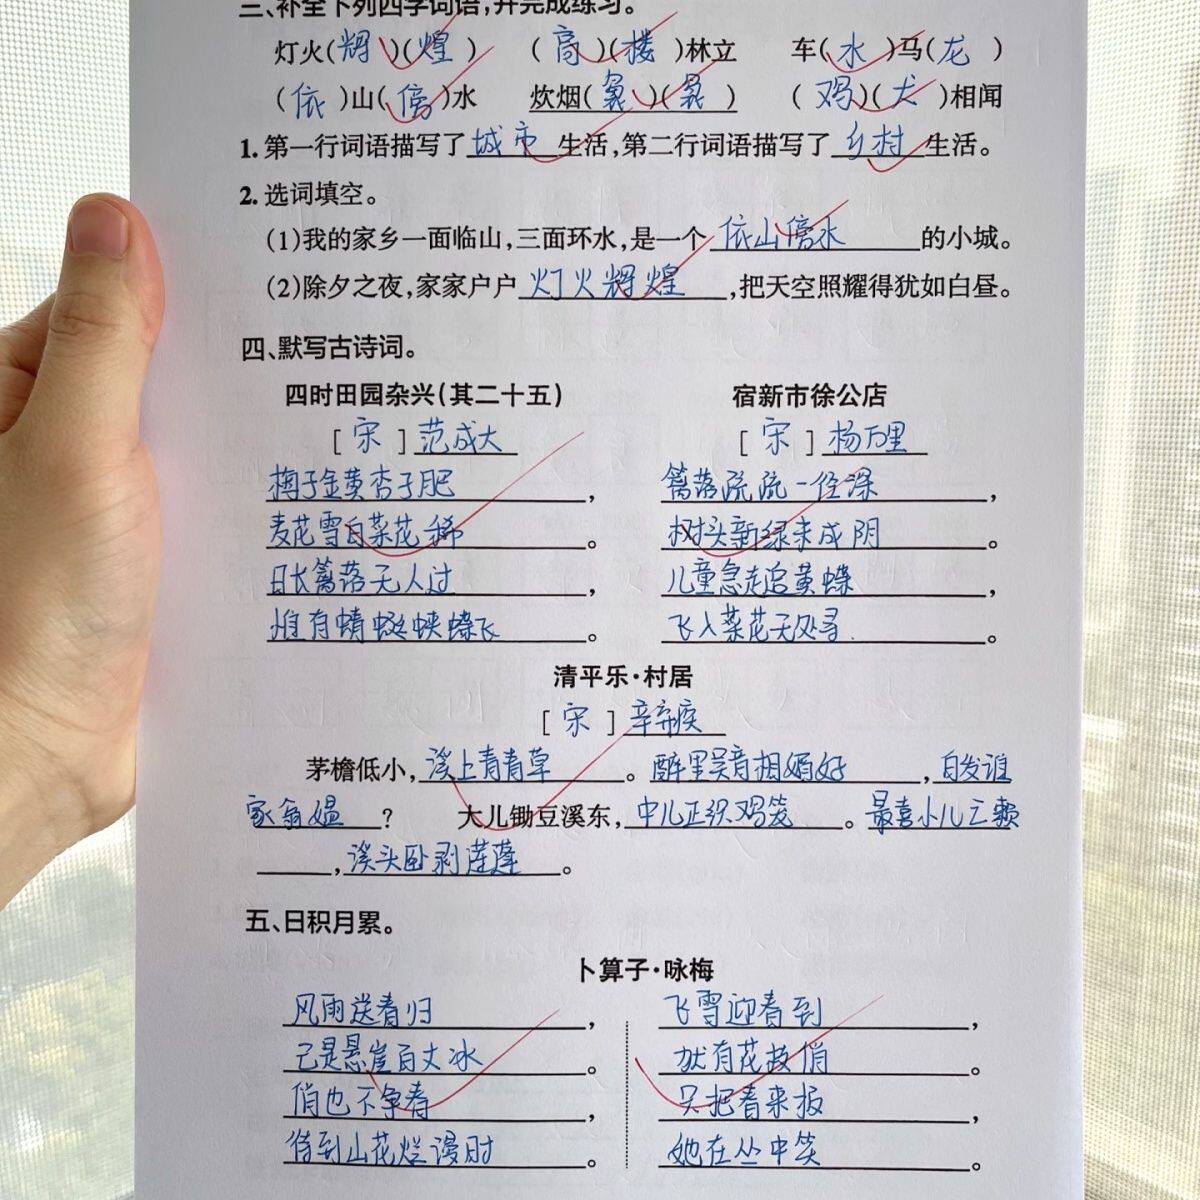 三、补全下列四字词语,并完成练习。
灯火(辉)(煌) (高)(楼)林立 车(水)马(龙)
(依)山(傍)水 炊烟(袅)(袅) (鸡)(犬)相闻
1. 第一行词语描写了城市生活,第二行词语描写了乡村生活。
2. 选词填空。
(1)我的家乡一面临山,三面环水,是一个依山傍水的小城。
(2)除夕之夜,家家户户灯火辉煌,把天空照耀得犹如白昼。
四、默写古诗词。
四时田园杂兴(其二十五) 宿新市徐公店
[宋]范成大 [宋]杨万里
梅子金黄杏子肥, 篱落疏疏一径深,
麦花雪白菜花稀。 树头新绿未成阴。
日长篱落无人过, 儿童急走追黄蝶,
惟有蜻蜓蛱蝶飞。 飞入菜花无处寻。
清平乐·村居
[宋]辛弃疾
茅檐低小,溪上青青草。醉里吴音相媚好,白发谁
家翁媪? 大儿锄豆溪东,中儿正织鸡笼。最喜小儿亡赖
,溪头卧剥莲蓬。
五、日积月累。
卜算子·咏梅
风雨送春归, 飞雪迎春到,
已是悬崖百丈冰。 犹有花枝俏。
俏也不争春, 只把春来报,
待到山花烂漫时。 她在丛中笑。